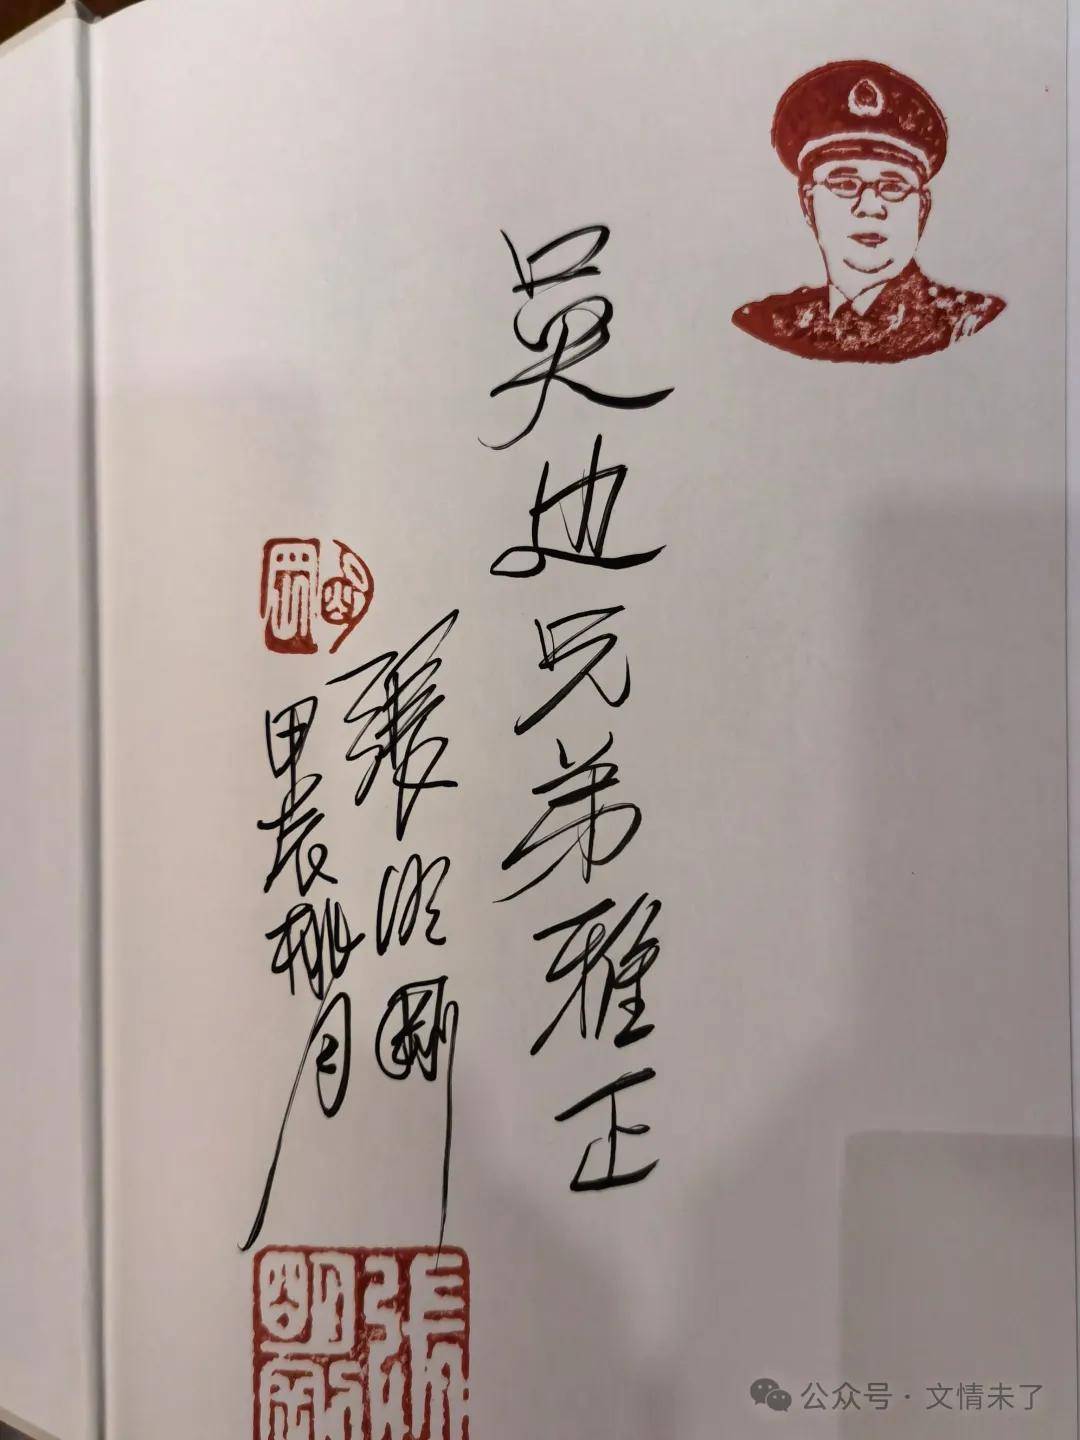 吴边兄弟雅正
張明剛
甲辰桃月
公众号·文情未了